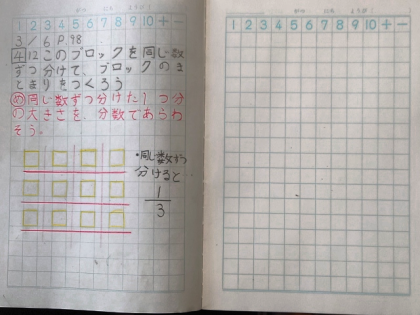 1 2 3 4 5 6 7 8 9 10 + −
3/6 P.98
4 12このブロックを同じ数
ずつ分けて、ブロックのま
とまりをつくろう
め 同じ数ずつ分けた1つ分
の大きさを、分数であらわ
そう。
・同じ数ずつ
分けると…
1
3
1 2 3 4 5 6 7 8 9 10 + −